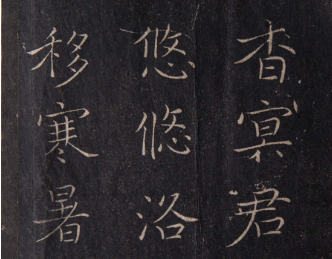 杳冥君
悠悠洛
移寒暑